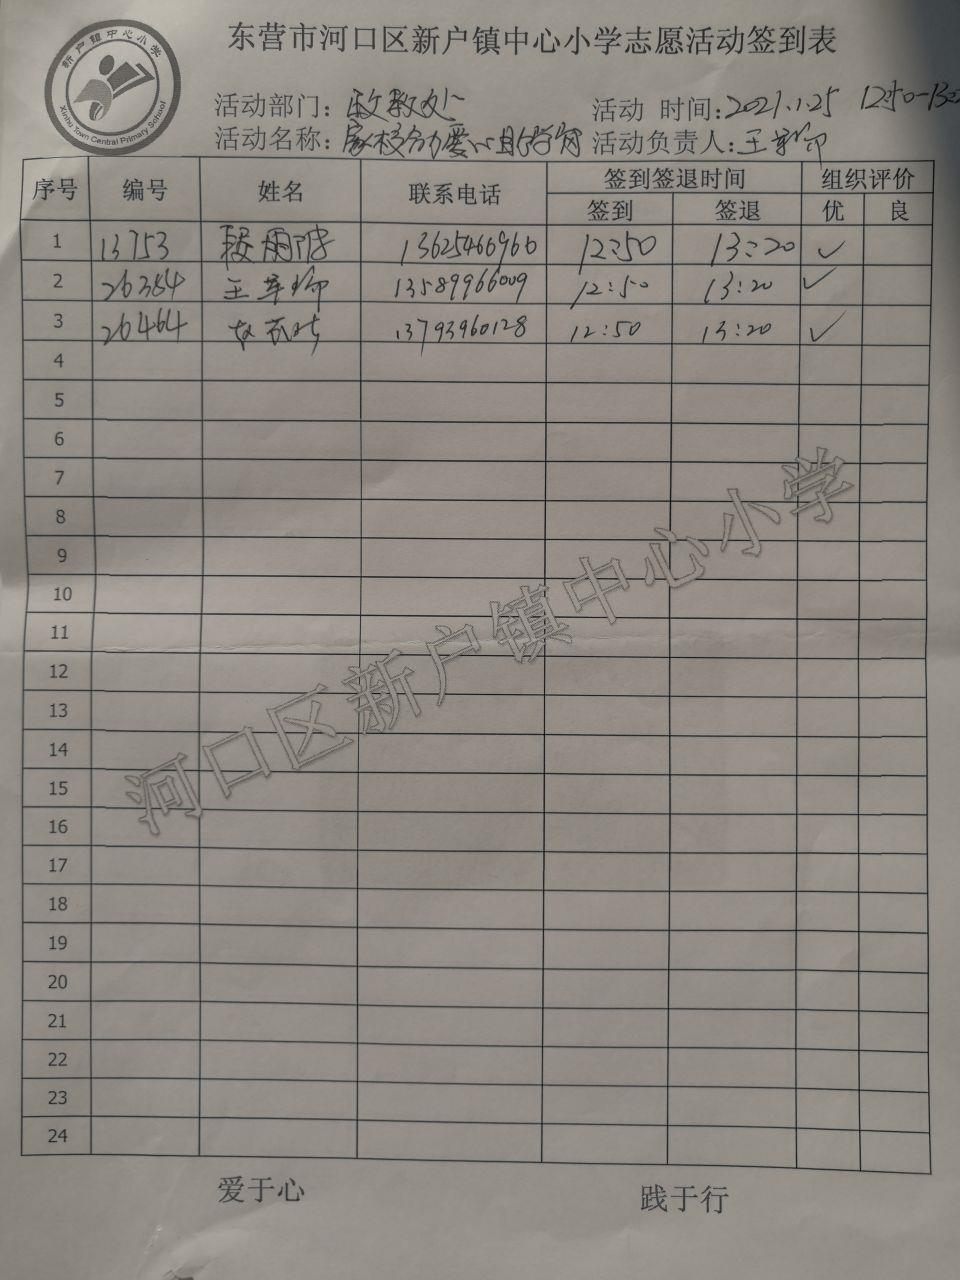 东营市河口区新户镇中心小学志愿活动签到表
新户镇中心小学
Xinhu Town Central Primary School
活动部门：政教处 活动 时间：2021.1.25 12:50-13:20
活动名称： 活动负责人：王
序号 编号 姓名 联系电话 签到签退时间 组织评价
签到 签退 优 良
1 13753 雨 13625466966 12:50 13:20 ✓
2 26384 王 13589966009 12:50 13:20 ✓
3 26464 13793960128 12:50 13:20 ✓
4
5
6
7
8
9
10
11
12
13
14
15
16
17
18
19
20
21
22
23
24
河口区新户镇中心小学
爱于心 践于行